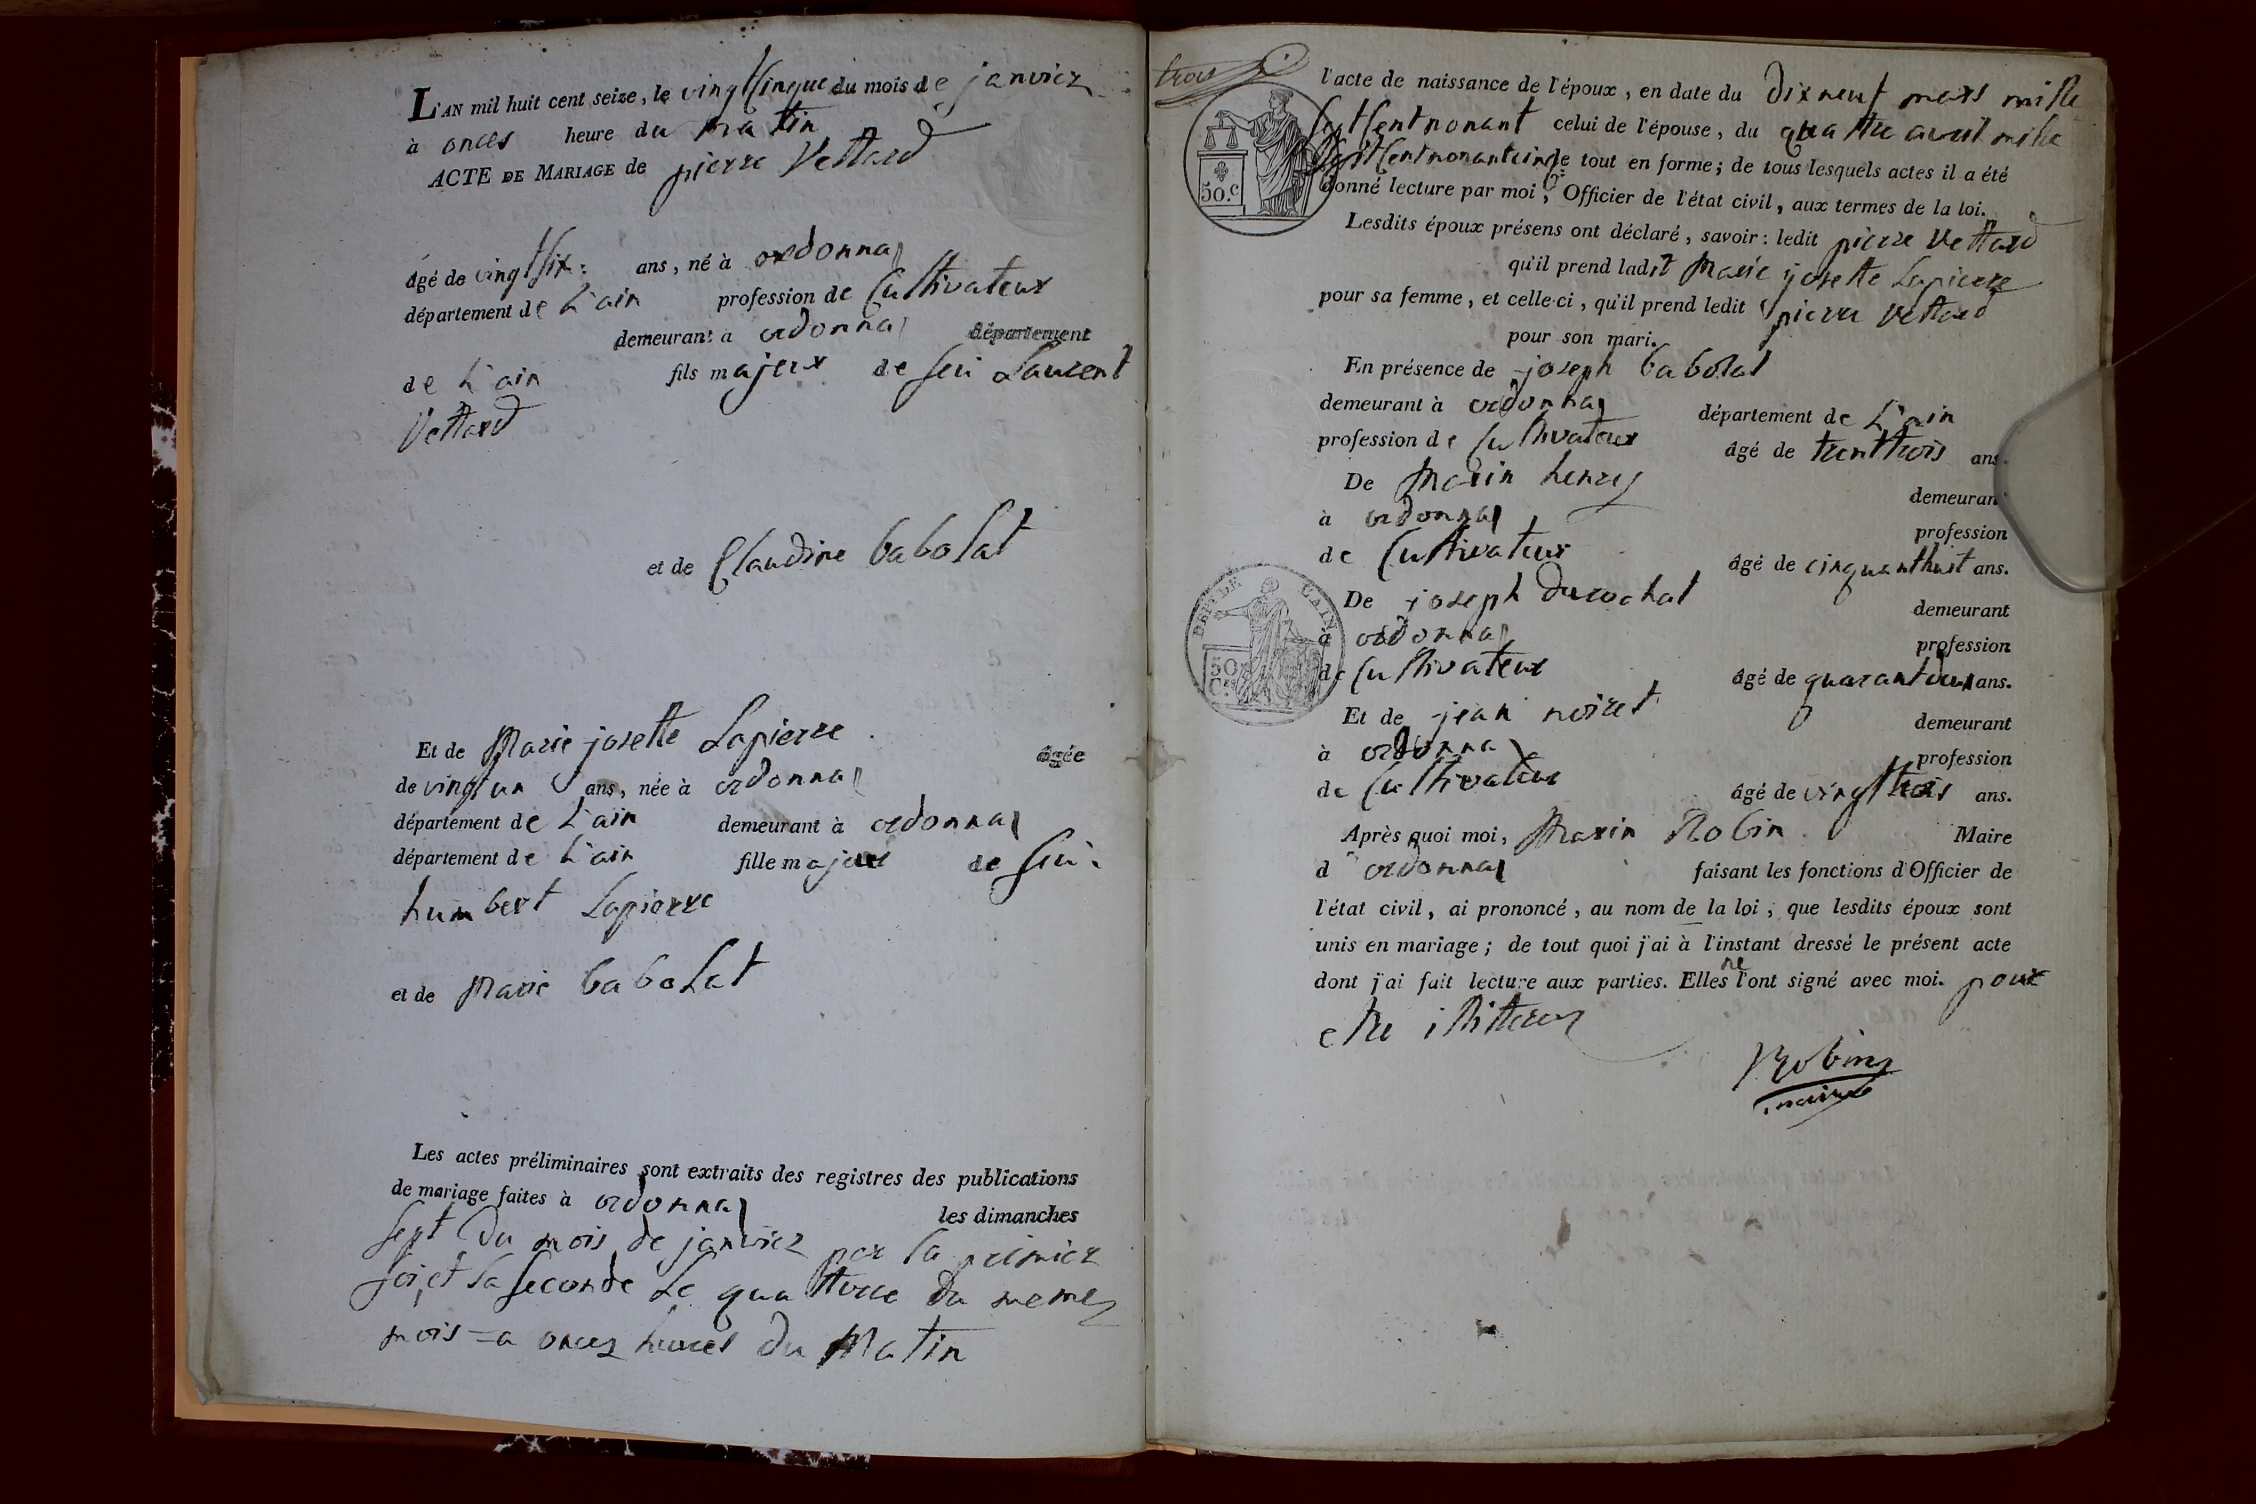 L'AN mil huit cent seize, le vingtsinque du mois de janvier
à onces heure du matin
ACTE DE MARIAGE de pierre Vettard
âgé de vingtsix: ans, né à ordonnas
département de L'ain profession de Cultivateur
demeurant à ordonnas département
de L'ain fils majeur de feu Laurent
Vettard
et de Claudine babolat
Et de Marie josette Lapierre âgée
de vingt un ans, née à ordonnas
département de L'ain demeurant à ordonnas
département de L'ain fille majeur de feu
humbert Lapierre
et de Marie babolat
Les actes préliminaires sont extraits des registres des publications
de mariage faites à ordonnas les dimanches
sept du mois de janvier par la premier
foi, et la seconde Le quattorce du meme
mois = a onces heures du Matin
trois
l'acte de naissance de l'époux, en date du dixneuf mars mille
septsentnonant celui de l'épouse, du quattre avril mille
septsentnonantcinq tout en forme; de tous lesquels actes il a été
donné lecture par moi, Officier de l'état civil, aux termes de la loi.
50.C
Lesdits époux présens ont déclaré, savoir: ledit pierre Vettard
qu'il prend ladit Marie josette Lapierre
pour sa femme, et celle-ci, qu'il prend ledit pierre Vettard
pour son mari.
En présence de joseph babolat
demeurant à ordonnas département de L'ain
profession de Cultivateur âgé de trenttrois ans.
De Marin henry demeurant
à ordonnas profession
de Cultivateur âgé de cinquanthuit ans.
De joseph durochat demeurant
à ordonnas profession
de Cultivateur âgé de quarantdeux ans.
DEPT DE L'AIN
50 Cs
Et de jean noiret demeurant
à ordonnas profession
de Cultivateur âgé de vingttrois ans.
Après quoi moi, Marin Robin Maire
d' ordonnas faisant les fonctions d'Officier de
l'état civil, ai prononcé, au nom de la loi, que lesdits époux sont
unis en mariage; de tout quoi j'ai à l'instant dressé le présent acte
dont j'ai fait lecture aux parties. Elles ne l'ont signé avec moi. pour
etre illiterez
Robin
maire